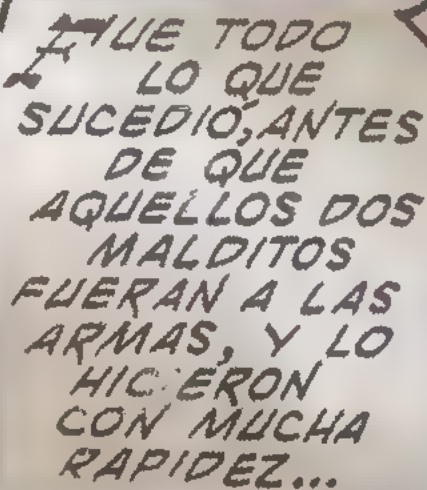 FUE TODO
LO QUE
SUCEDIÓ, ANTES
DE QUE
AQUELLOS DOS
MALDITOS
FUERAN A LAS
ARMAS, Y LO
HICIERON
CON MUCHA
RAPIDEZ...